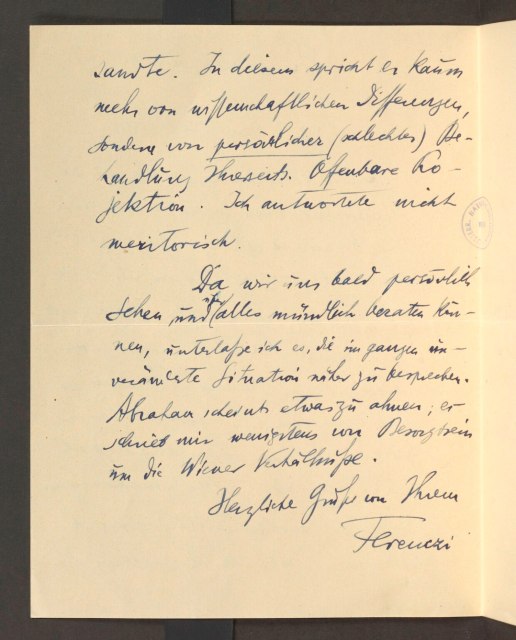 sandte. In diesem spricht er kaum
mehr von wissenschaftlichen Differenzen,
sondern von persönlicher (schlechter) Be-
handlung Ihrerseits. Offenbare Pro-
jektion. Ich antwortete nicht
meritorisch.
Da wir uns bald persönlich
sehen und alles mündlich beraten kön-
nen, unterlasse ich es, die im ganzen un-
veränderte Situation näher zu besprechen.
Abraham scheint etwas zu ahnen; er
schrieb mir wenigstens von Besorgtsein
um die Wiener Verhältnisse.
Herzliche Grüße von Ihrem
Ferenczi